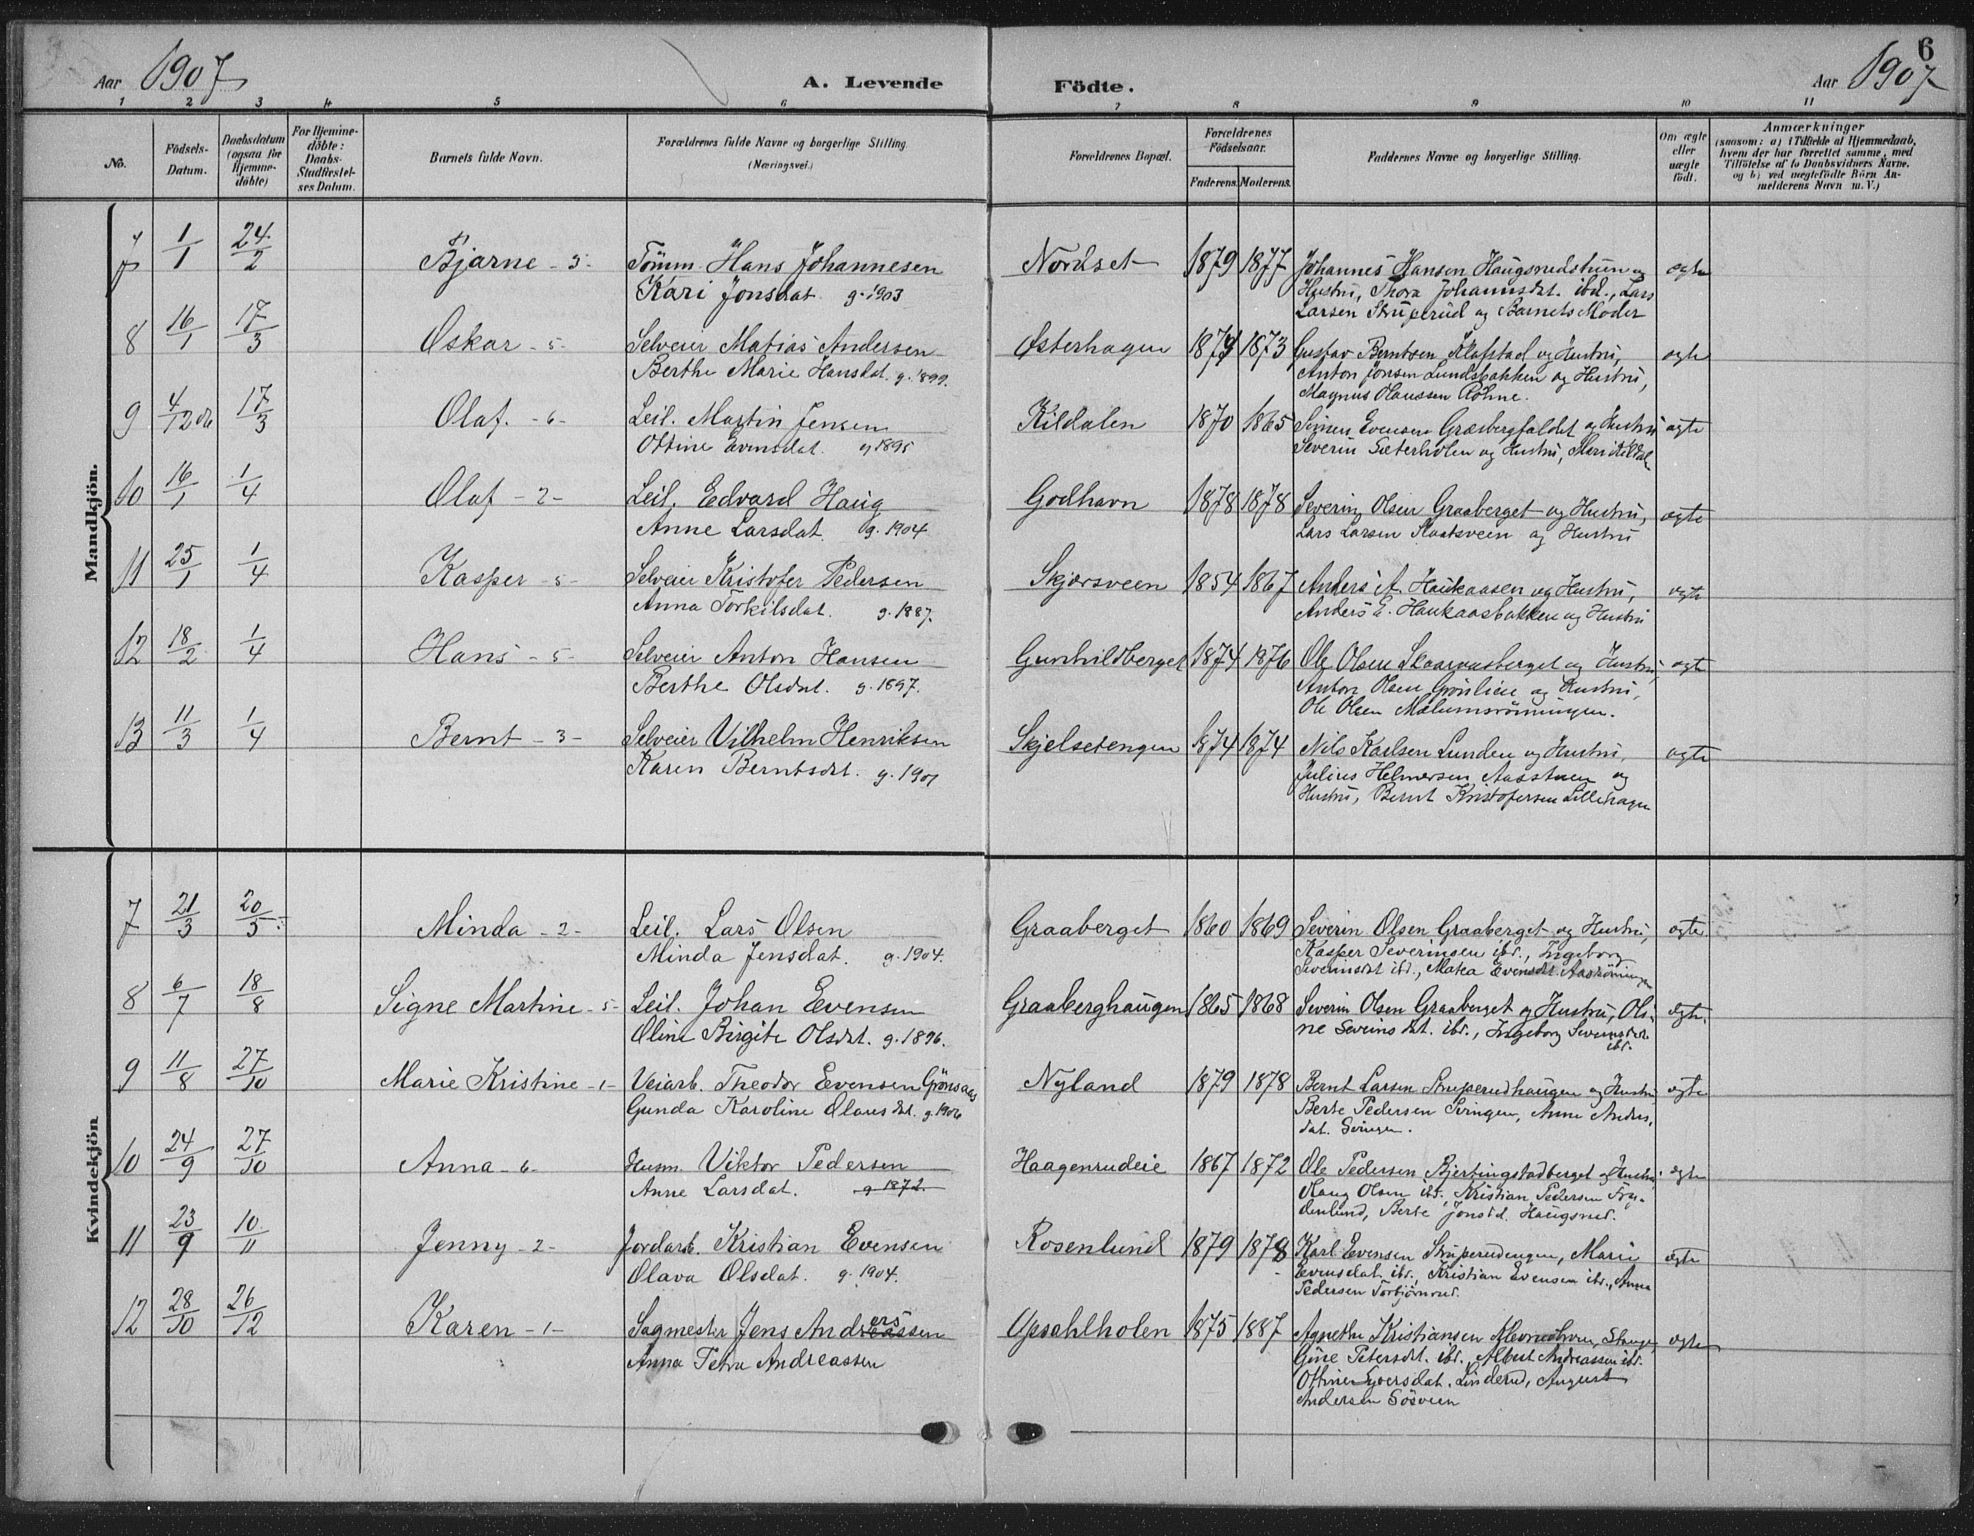 6
Aar 1907 A. Levende Födte. Aar 1907
1 2 3 4 5 6 7 8 9 10 11
No.
Födsels-
Datum.
Daabsdatum
(ogsaa for
Hjemme-
döbte)
For Hjemme-
döbte:
Daabs-
Stadfæstel-
ses Datum.
Barnets fulde Navn.
Forældrenes fulde Navne og borgerlige Stilling
(Næringsvei.)
Forældrenes Bopæl.
Forældrenes
Födselsaar.
Faderens. Moderens.
Faddernes Navne og borgerlige Stilling.
Om ægte
eller
uægte
födt.
Anmærkninger
(saasom: a) i Tilfælde af Hjemmedaab,
hvem der har forrettet samme, med
Tilföielse af to Daabsvidners Navne.
og b) ved uægtefödte Börn An-
melderens Navn m. V.)
Mandkjön.
7 1/1 24/2 Bjarne - 5 - Tömm. Hans Johannesen Nordset 1879 1877 Johannes Hansen Haugsrudstuen og ægte
Kari Jonsdat. g. 1903 Hustru, Thora Johannsdt. ibd., Lars
Larsen Struperud og Barnets Moder
8 16/1 17/3 Oskar - 5 - Selveier Matias Andersen Østerhagen 1874 1873 Gustav Berntsen Klafstad og Hustru, ægte
Berthe Marie Hansdat. g. 1899. Anton Jonsen Lundsbakken og Hustru,
Magnus Olaussen Röhne.
9 4/12 06 17/3 Olaf. - 6 - Leil. Martin Jensen Kildalen 1870 1865 Simen Evensen Græsbergfaldet og Hustru ægte
Ottine Evensdat. g 1895 Severin Sæterholen og Hustru,
10 16/1 1/4 Olaf - 2 - Leil. Edvard Haug Godhavn 1878 1878 Severin Olsen Graaberget og Hustru, ægte
Anne Larsdat. g. 1904 Lars Larsen Kaatsveen og Hustru
11 25/1 1/4 Kasper - 5 - Selveier Kristofer Pedersen Skjærsveen 1854 1867 Anders A. Haukaasen og Hustru, ægte
Anna Torkilsdat. g. 1887. Anders E. Haukaasbakken og Hustru
12 18/2 1/4 Hans - 5 - Selveier Anton Hansen Gunhildberget 1874 1876 Ole Olsen Skaarusberget og Hustru, ægte
Berthe Olsdat. g. 1897. Anton Olsen Grönlien og Hustru,
Ole Olsen Mælumsrönningen.
13 11/3 1/4 Bernt - 3 - Selveier Vilhelm Henriksen Skjelsetengen 1874 1874 Nils Karlsen Lunden og Hustru, ægte
Karen Berntsdt. g. 1901 Julius Helmersen Aasstuen og
Hustru, Bernt Kristofersen Lillehagen
Kvindekjön
7 21/3 20/5 Minda - 2 - Leil. Lars Olsen Graaberget 1860 1869 Severin Olsen Graaberget og Hustru, ægte
Minda Jensdat. g. 1904. Kasper Severinsen ibd., Ingeborg
Severinsdt ibd., Matea Evensdt. Aasrönningen
8 6/7 18/8 Signe Martine - 5 - Leil. Johan Evensen Graaberghaugen 1865 1868 Severin Olsen Graaberget og Hustru, Oli- ægte.
Oline Birgite Olsdt. g. 1896. ne Severinsdt. ibd., Ingeborg Severinsdt.
ibd.
9 11/8 27/10 Marie Kristine - 1 - Veiarb. Theodor Evensen Grönsaas Nyland 1879 1878 Bernt Larsen Struperudhaugen og Hustru ægte
Gunda Karoline Olausdt. g. 1906 Berte Pedersen Svingen, Anne Andrs.
dat. Svingen.
10 24/9 27/10 Anna - 6 - Husm. Viktor Pedersen Haagenrudeie 1867 1872 Ole Pedersen Bjertingstadberget og Hustru ægte
Anne Larsdat. g 1872. Olsen ibd., Kristian Pedersen Fry-
denlund, Berte Jonsd. Haugsrud.
11 23/9 10/11 Jenny - 2 - Jordarb. Kristian Evensen Rosenlund 1879 1878 Karl Evensen Struperudengen, Marie ægte
Olava Olsdat. g. 1904. Evensdat. ibd., Kristian Evensen ibd., Anna
Pedersen Torbjørnrud.
12 28/10 26/12 Karen - 1 - Sagmester Jens Andreassen ers Opsahlholen 1875 1887 Agnethe Kristiansen Stange, ægte
Anna Petra Andreassen Gine Petersdt. ibd., Albert Andreassen ibd.
Ottine Syversdat. Linderud, August
Andersen Sösveen